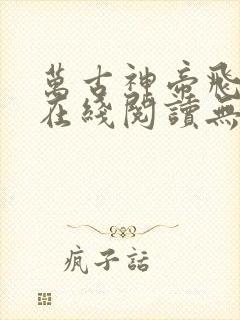 萬古神帝飛
在綫閱讀無
瘋子話